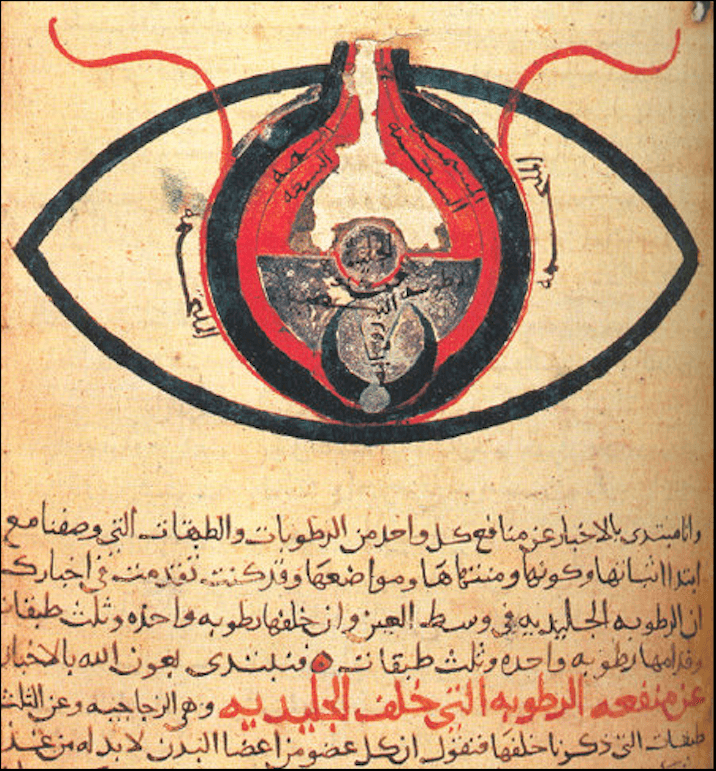 الملتحمه
الجليديه
الرطوبه
وانا مبتدى بالاخبار عن منافع كل واحد من الرطوبات والطبقات التي وصفنا مع
ابتدا اثباتها وكونها ومنتهاها ومواضعها وقد كنت تقدمت في اخبارك
ان الرطوبه الجليديه في وسط العين وان خلفها رطوبه واحده وثلث طبقات
وقدامها رطوبه واحده وثلث طبقات فنبتدى بعون الله بالاخبار
عن منفعه الرطوبه التي خلف الجليديه وهي الزجاجيه وعن الثلث
طبقات التي ذكرنا خلفها فنقول ان كل عضو من اعضا البدن لا بد له من غذا